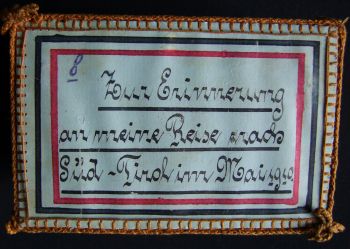 8
Zur Erinnerung
an meine Reise nach
Süd-Tirol im Mai 1910.